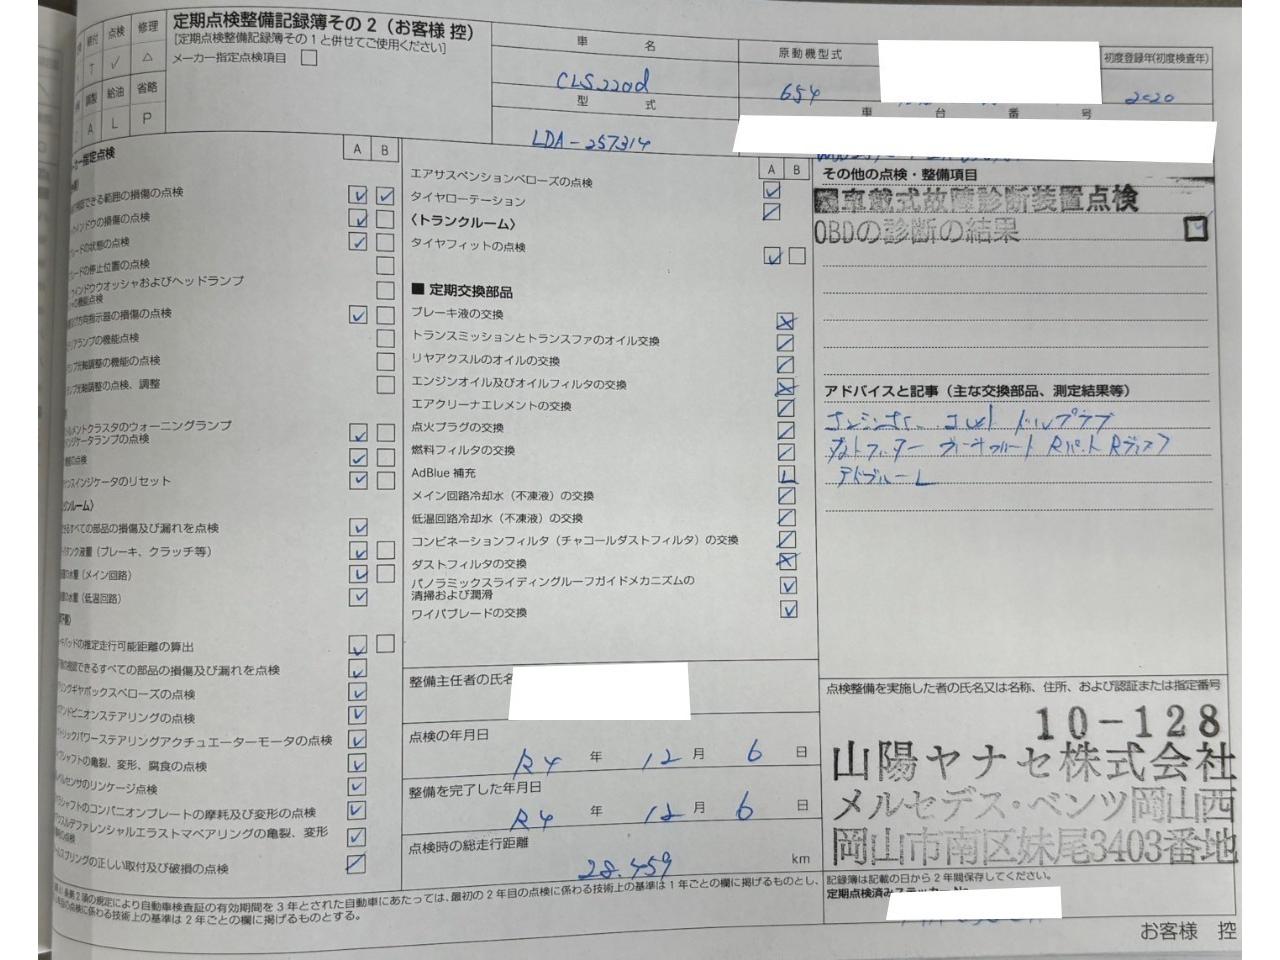 定期点検整備記録簿その2(お客様 控)
[定期点検整備記録簿その1と併せてご使用ください]
メーカー指定点検項目
締付 点検 修理
T ✓ △
調製 給油 省略
A L P
車 名
CLS220d
原動機型式
654
初度登録年(初度検査年)
2020
型 式
LDA-257314
車 台 番 号
カー指定点検
A B
できる範囲の損傷の点検
ンドウの損傷の点検
レードの状態の点検
ードの停止位置の点検
インドウウオッシャおよびヘッドランプ
の機能点検
方向指示器の損傷の点検
リアランプの機能点検
光軸調整の機能の点検
光軸調整の点検、調整
ルメントクラスタのウォーニングランプ
ンジケータランプの点検
の点検
スインジケータのリセット
ンルーム〉
るすべての部品の損傷及び漏れを点検
タンク液量(ブレーキ、クラッチ等)
の水量(メイン回路)
の水量(低温回路)
パッドの推定走行可能距離の算出
視認できるすべての部品の損傷及び漏れを点検
リングギヤボックスベローズの点検
アンドピニオンステアリングの点検
トリックパワーステアリングアクチュエーターモータの点検
シャフトの亀裂、変形、腐食の点検
ルセンサのリンケージ点検
シャフトのコンパニオンプレートの摩耗及び変形の点検
デファレンシャルエラストマベアリングの亀裂、変形
の点検
スプリングの正しい取付及び破損の点検
A B
エアサスペンションベローズの点検
タイヤローテーション
〈トランクルーム〉
タイヤフィットの点検
■ 定期交換部品
ブレーキ液の交換
トランスミッションとトランスファのオイル交換
リヤアクスルのオイルの交換
エンジンオイル及びオイルフィルタの交換
エアクリーナエレメントの交換
点火プラグの交換
燃料フィルタの交換
AdBlue 補充 L
メイン回路冷却水(不凍液)の交換
低温回路冷却水(不凍液)の交換
コンビネーションフィルタ(チャコールダストフィルタ)の交換
ダストフィルタの交換
パノラミックスライディングルーフガイドメカニズムの
清掃および潤滑
ワイパブレードの交換
整備主任者の氏名
点検の年月日
R4 年 12 月 6 日
整備を完了した年月日
R4 年 12 月 6 日
点検時の総走行距離
28.459 km
その他の点検・整備項目
車載式故障診断装置点検
OBDの診断の結果
アドバイスと記事(主な交換部品、測定結果等)
エンジンオイル エレメント ドレンプラグ
ダストフィルター ブレーキフルード Rパット Rディスク
アドブルーL
点検整備を実施した者の氏名又は名称、住所、および認証または指定番号
10-128
山陽ヤナセ株式会社
メルセデス・ベンツ岡山西
岡山市南区妹尾3403番地
記録簿は記載の日から2年間保存してください。
定期点検済みステッカー No.
条第2項の規定により自動車検査証の有効期間を3年とされた自動車にあたっては、最初の2年目の点検に係わる技術上の基準は1年ごとの欄に掲げるものとし、
目の点検に係わる技術上の基準は2年ごとの欄に掲げるものとする。
お客様 控